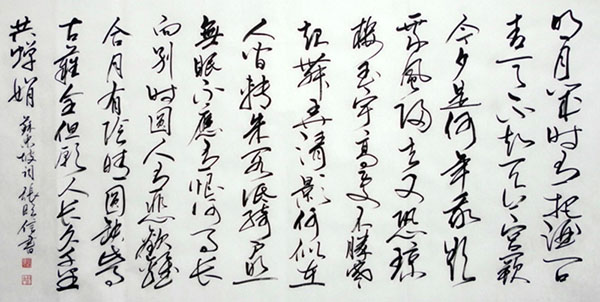 明月几时有把酒问
青天不知天上宫阙
今夕是何年我欲
乘风归去又恐琼
楼玉宇高处不胜寒
起舞弄清影何似在
人间转朱阁低绮户照
無眠不應有恨何事长
向别时圆人有悲歡離
合月有阴晴圆缺此事
古難全但願人长久千里
共婵娟 蘇东坡词張信書